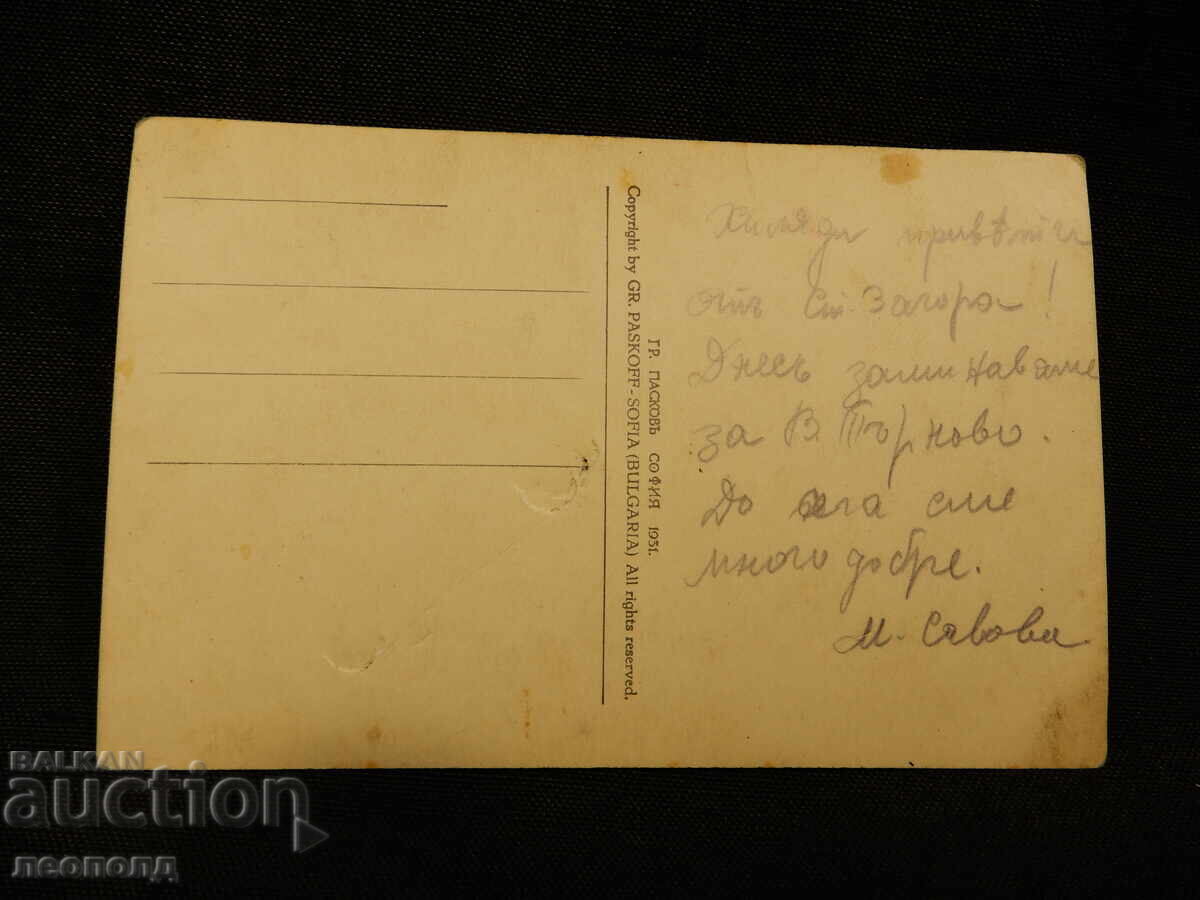 Хиляди привѣти
отъ Ст. Загора!
Днесъ заминаваме
за В. Търново.
До сега сме
много добре.
М. Савова
ГР. ПАСКОВЪ СОФИЯ 1931.
Copyright by GR. PASKOFF - SOFIA (BULGARIA) All rights reserved.
BALKAN
auction
леополд